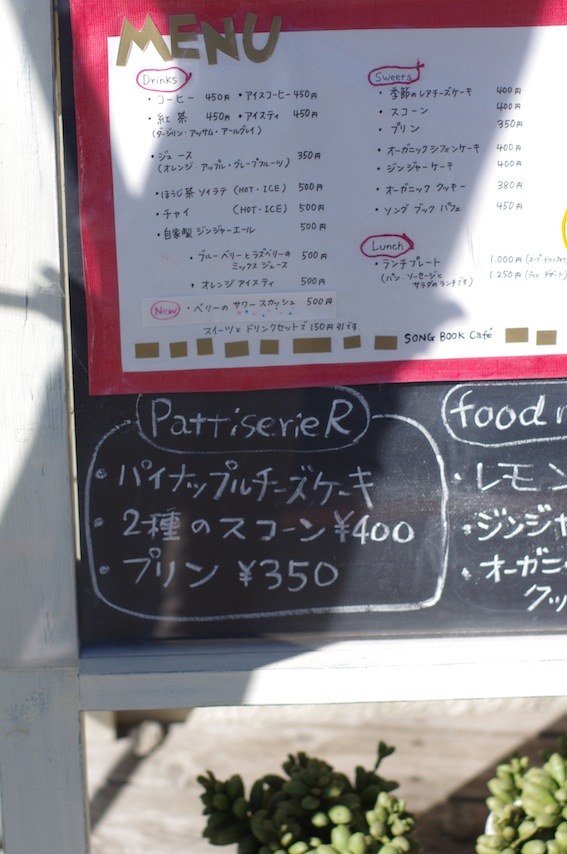 MENU
Drinks
・コーヒー 450円 ・アイスコーヒー 450円
・紅茶 450円 ・アイスティ 450円
(ダージリン・アッサム・アールグレイ)
・ジュース 350円
(オレンジ・アップル・グレープフルーツ)
・ほうじ茶 ソイラテ (HOT・ICE) 500円
・チャイ (HOT・ICE) 500円
・自家製 ジンジャーエール 500円
・ブルーベリーとラズベリーの 500円
ミックス ジュース
・オレンジ アイスティ 500円
New ・ベリーの サワー スカッシュ 500円
スイーツと ドリンクセットで 150円 引です。
Sweets
・季節のレアチーズケーキ 400円
・スコーン 400円
・プリン 350円
・オーガニック シフォンケーキ 400円
・ジンジャーケーキ 400円
・オーガニック クッキー 380円
・ソング ブック パフェ 450円
Lunch
・ランチプレート 1.000円
(パン・ソーセージと 1.250円
サラダのランチです)
SONG BOOK Café
PattiserieR
・パイナップルチーズケーキ
・2種のスコーン ¥400
・プリン ¥350
food
・レモン
・ジンジャ
・オーガニ
クッ